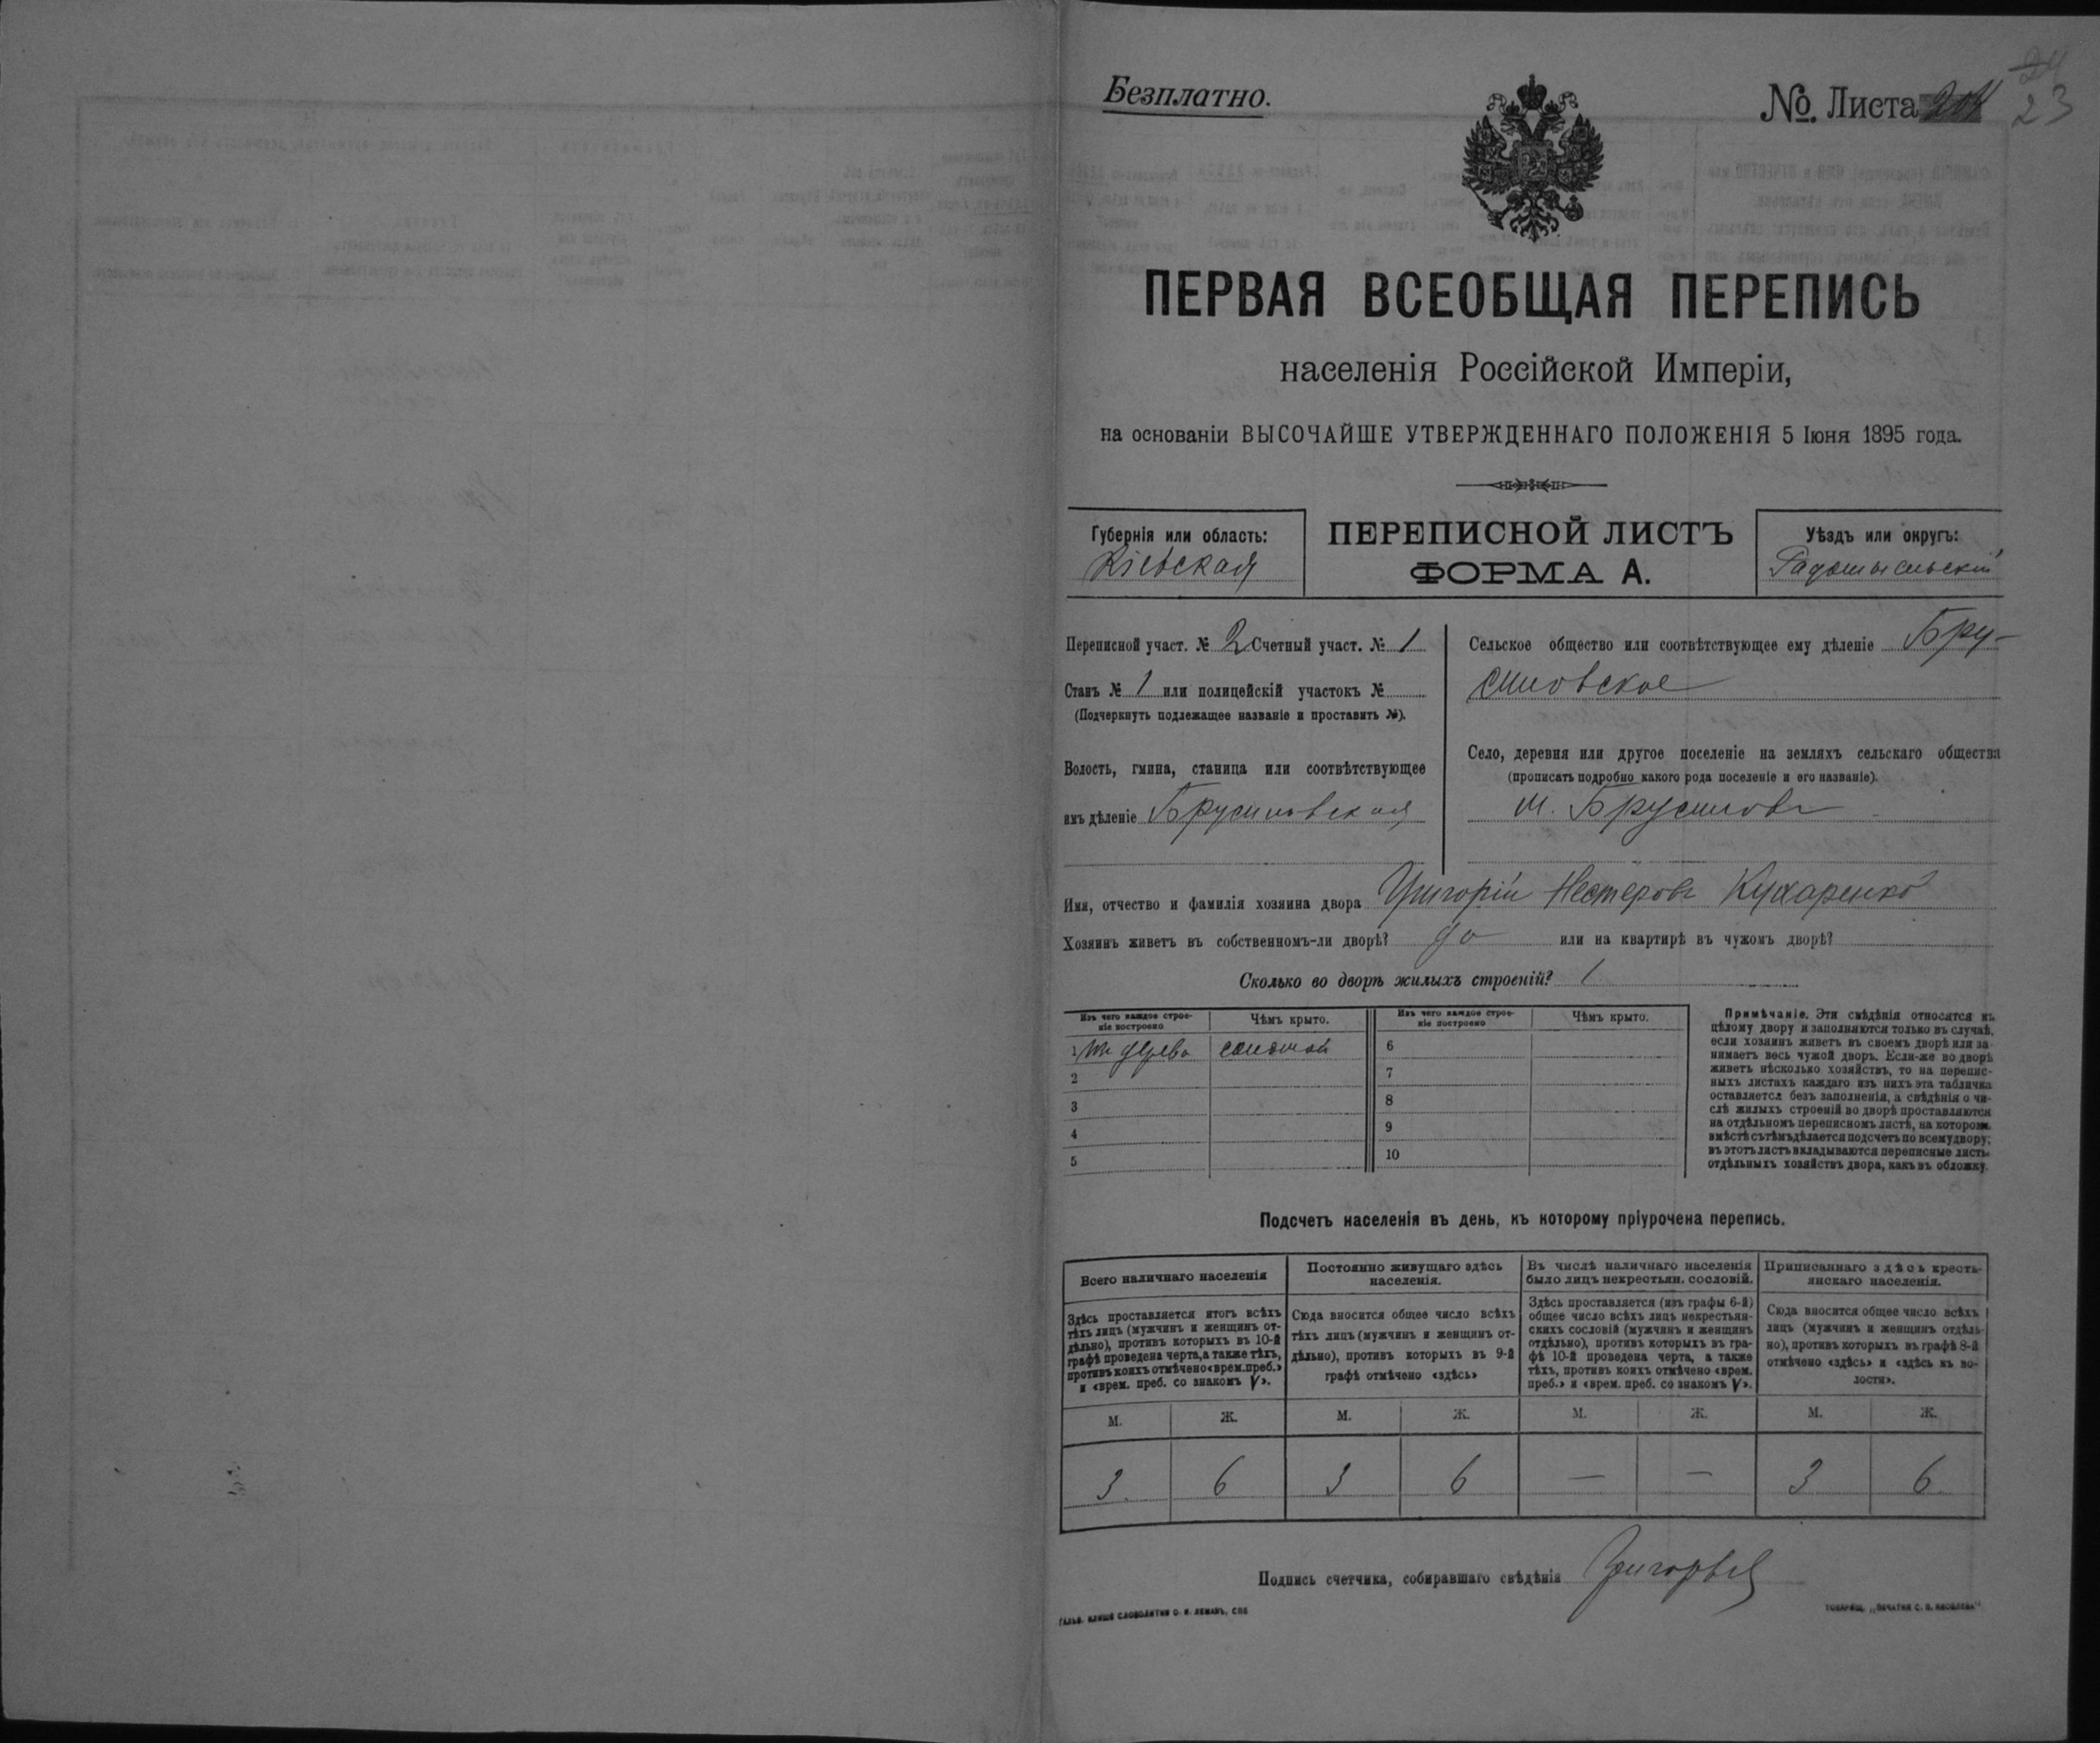 24
23
Безплатно.
№. Листа
ПЕРВАЯ ВСЕОБЩАЯ ПЕРЕПИСЬ
населенія Россійской Имперіи,
на основаніи ВЫСОЧАЙШЕ УТВЕРЖДЕННАГО ПОЛОЖЕНІЯ 5 Іюня 1895 года.
Губернія или область:
Кіевская
ПЕРЕПИСНОЙ ЛИСТЪ
ФОРМА А.
Уѣздъ или округъ:
Радомысльскій
Переписной участ. № 2 Счетный участ. № 1
Станъ № 1 или полицейскій участокъ №
(Подчеркнуть подлежащее названіе и проставить №).
Волость, гмина, станица или соотвѣтствующее
имъ дѣленіе Брусиловская
Сельское общество или соотвѣтствующее ему дѣленіе Бру-
силовское
Село, деревня или другое поселеніе на земляхъ сельскаго общества
(прописать подробно какого рода поселеніе и его названіе).
м. Брусиловъ
Имя, отчество и фамилія хозяина двора Григорій Нестеровъ Кухаренко
Хозяинъ живетъ въ собственномъ-ли дворѣ? да или на квартирѣ въ чужомъ дворѣ?
Сколько во дворѣ жилыхъ строеній? 1
Изъ чего каждое строе-
ніе построено
Чѣмъ крыто.
Изъ чего каждое строе-
ніе построено
Чѣмъ крыто.
1 изъ дерева соломой
2
3
4
5
6
7
8
9
10
Примѣчаніе. Эти свѣдѣнія относятся къ
цѣлому двору и заполняются только въ случаѣ,
если хозяинъ живетъ въ своемъ дворѣ или за-
нимаетъ весь чужой дворъ. Если-же во дворѣ
живетъ нѣсколько хозяйствъ, то на перепис-
ныхъ листахъ каждаго изъ нихъ эта табличка
оставляется безъ заполненія, а свѣдѣнія о чи-
слѣ жилыхъ строеній во дворѣ проставляются
на отдѣльномъ переписномъ листѣ, на которомъ
вмѣстѣ съ тѣмъ дѣлается подсчетъ по всему двору;
въ этотъ листъ вкладываются переписные листы
отдѣльныхъ хозяйствъ двора, какъ въ обложку.
Подсчетъ населенія въ день, къ которому пріурочена перепись.
Всего наличнаго населенія
Здѣсь проставляется итогъ всѣхъ
тѣхъ лицъ (мужчинъ и женщинъ от-
дѣльно), противъ которыхъ въ 10-й
графѣ проведена черта, а также тѣхъ,
противъ коихъ отмѣчено «врем. преб.»
и «врем. преб. со знакомъ V».
Постоянно живущаго здѣсь
населенія.
Сюда вносится общее число всѣхъ
тѣхъ лицъ (мужчинъ и женщинъ от-
дѣльно), противъ которыхъ въ 9-й
графѣ отмѣчено «здѣсь»
Въ числѣ наличнаго населенія
было лицъ некрестьян. сословій.
Здѣсь проставляется (изъ графы 6-й)
общее число всѣхъ лицъ некрестьян-
скихъ сословій (мужчинъ и женщинъ
отдѣльно), противъ которыхъ въ гра-
фѣ 10-й проведена черта, а также
тѣхъ, противъ коихъ отмѣчено «врем.
преб.» и «врем. преб. со знакомъ V».
Приписаннаго здѣсь кресть-
янскаго населенія.
Сюда вносится общее число всѣхъ
лицъ (мужчинъ и женщинъ отдѣль-
но), противъ которыхъ въ графѣ 8-й
отмѣчено «здѣсь» и «здѣсь къ во-
лости».
М. Ж. М. Ж. М. Ж. М. Ж.
3 6 3 6 — — 3 6
Подпись счетчика, собиравшаго свѣдѣнія Григорьев
ГАЛЬВ. КЛИШЕ СЛОВОЛИТНИ О. И. ЛЕМАНЪ, СПБ
ТОВАРИЩ. „ПЕЧАТНЯ С. П. ЯКОВЛЕВА“